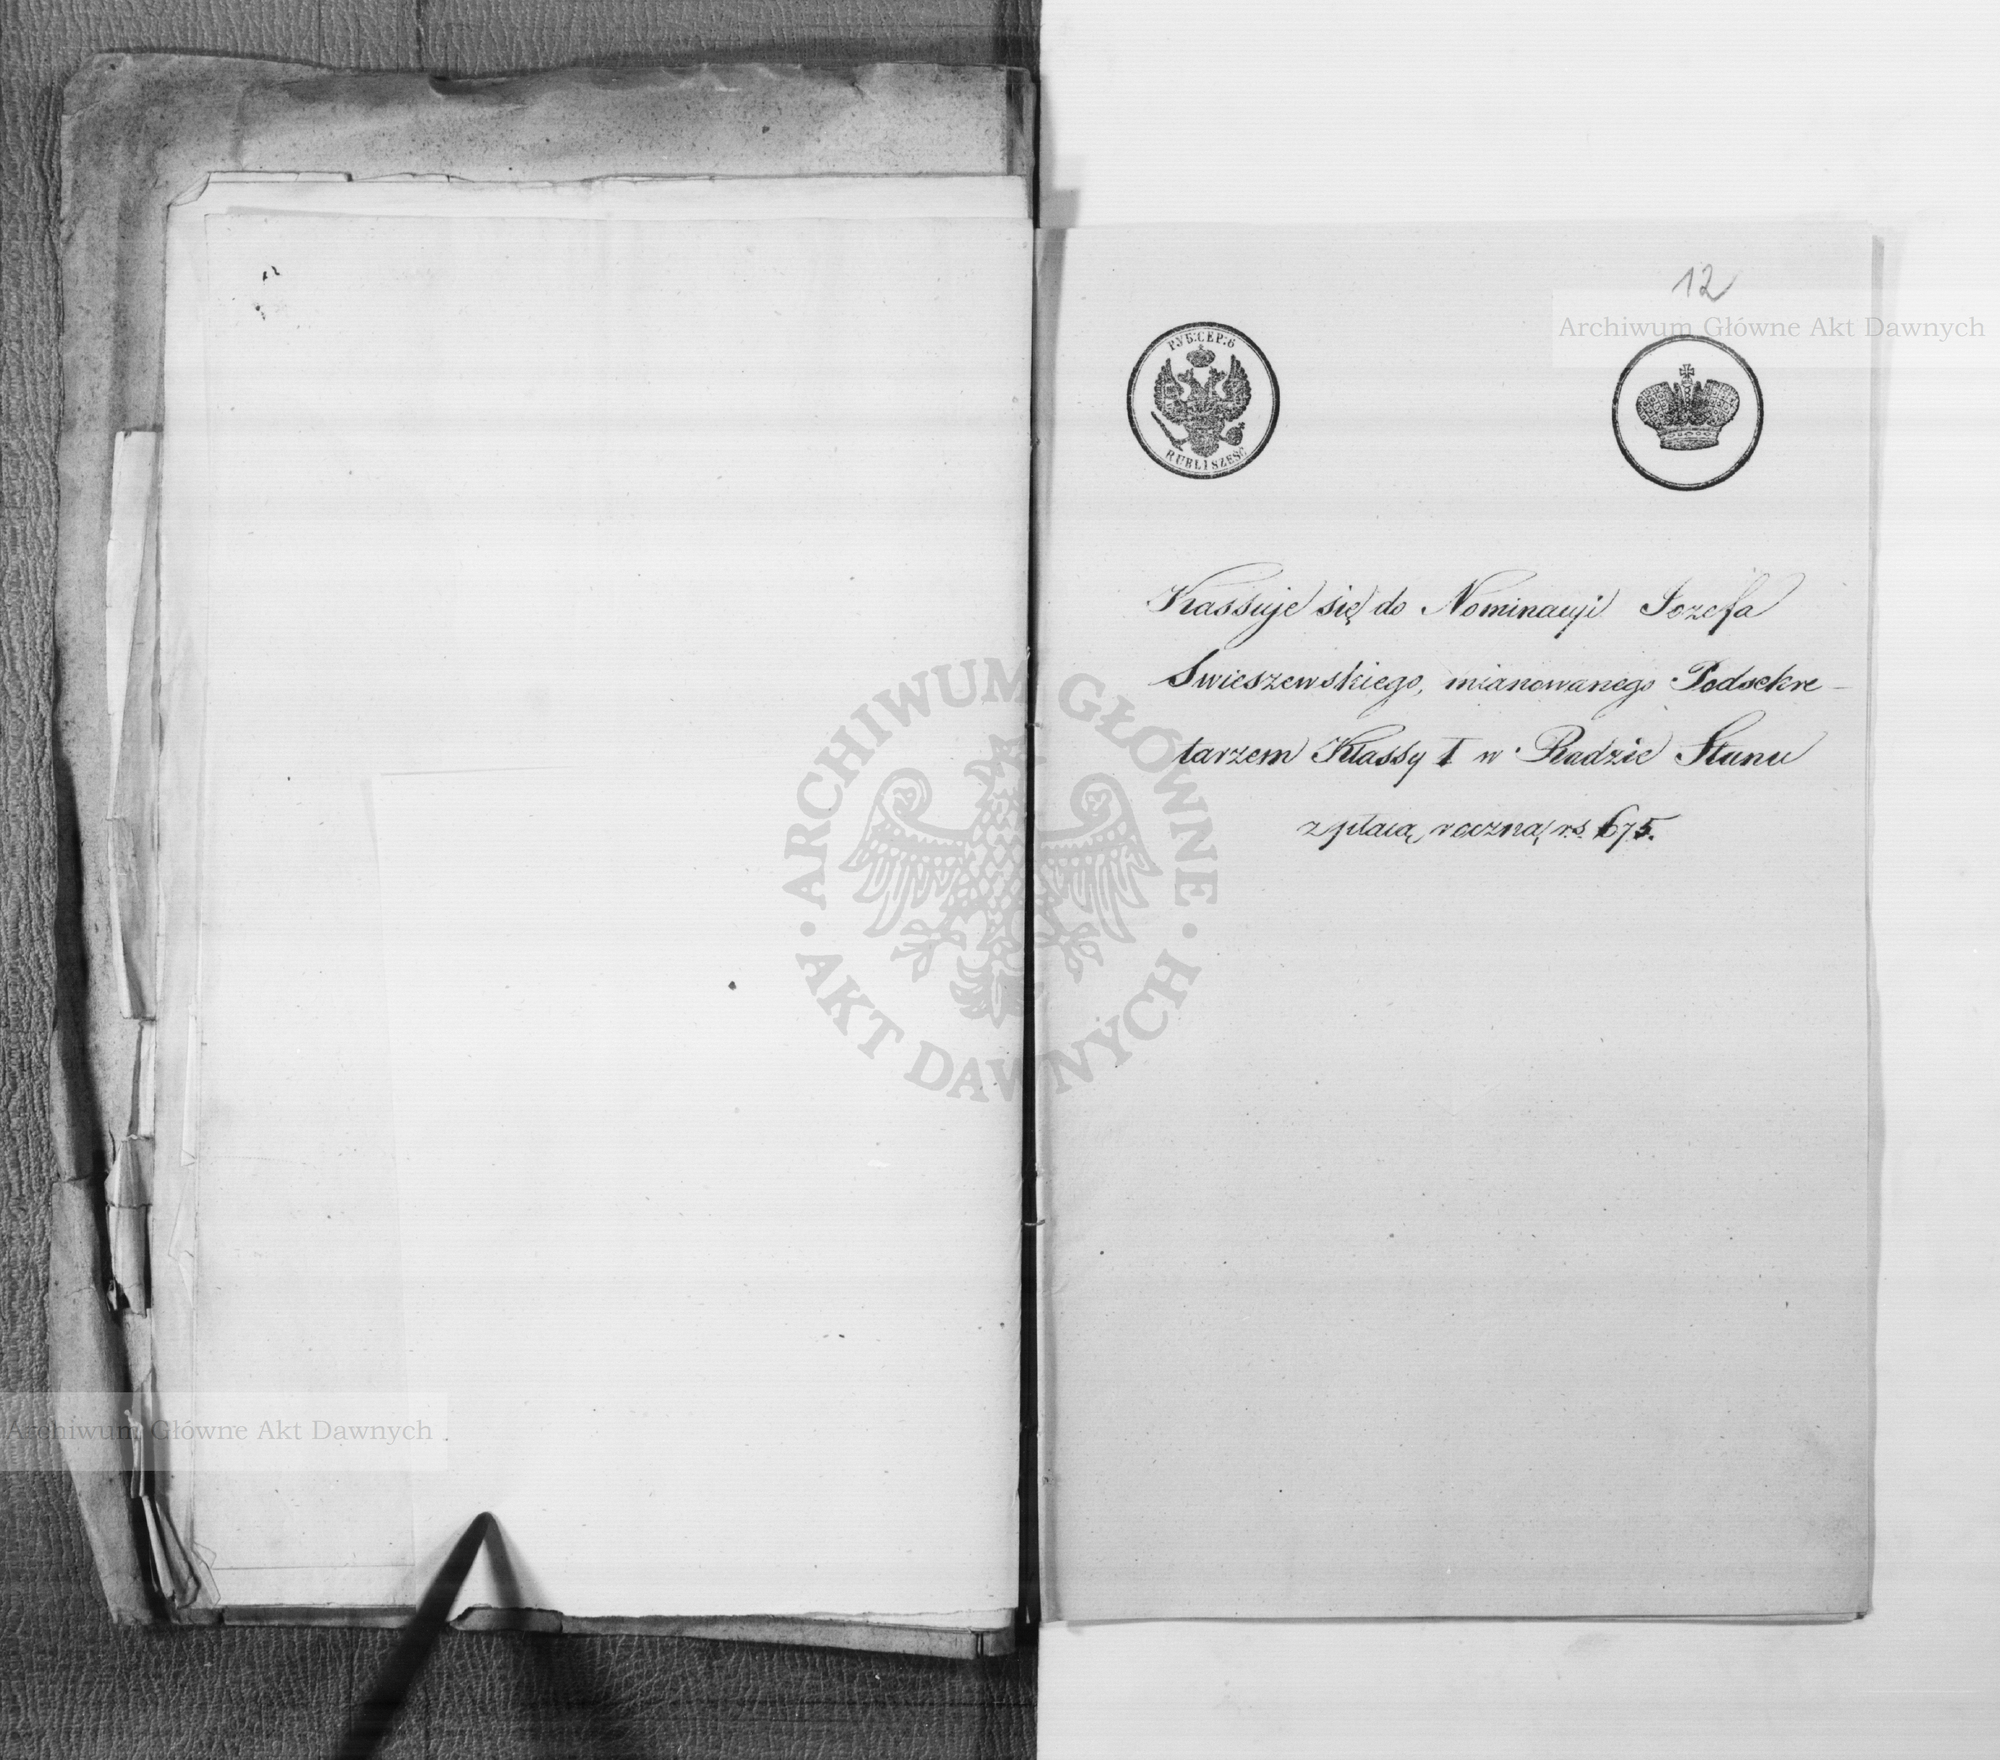 12
Archiwum Główne Akt Dawnych
РУБ:СЕР:6
RUBLI SZEŚĆ
Kassuje się do Nominacyi Jozefa
Swieszewskiego, mianowanego Podsekre-
tarzem Klassy I w Radzie Stanu
z płacą roczną rs 675.
ARCHIWUM GŁÓWNE
AKT DAWNYCH
Archiwum Główne Akt Dawnych